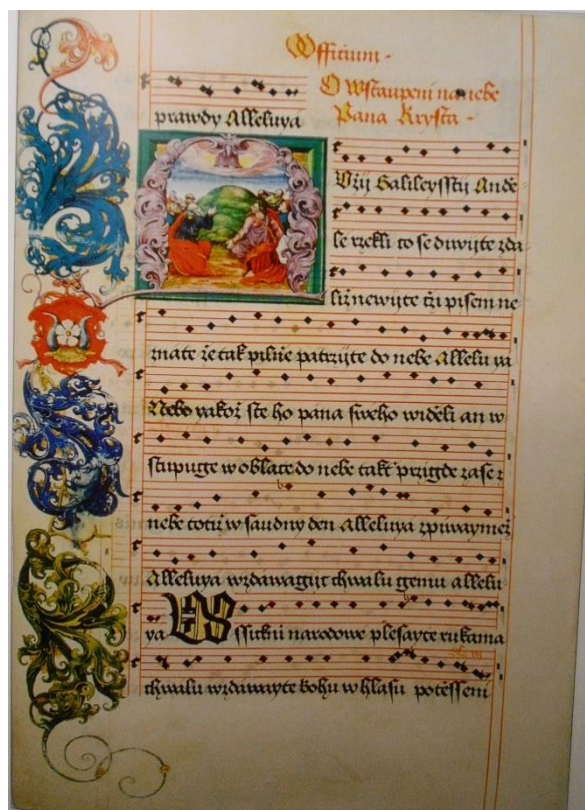 Officium
O wstaupeni na nebe
Pana Krysta
prawdy Alleluya
Galileysstij Ande
le rzekli to se diwijte zda
liz newijte czij pisem ne
mate že tak pilnie patrzijte do nebe Allelu ya
Nebo yakož ste ho pana sweho widěli an w
stupuge w oblace do nebe takt przigde zase z
nebe totiž w saudny den Alleluya zpiwaymež
Alleluya wzdawagijc chwalu gemu allelu
ya Wssickni narodowe plesayte rukama
chwalu wzdawayte bohu w hlasu potěsseni